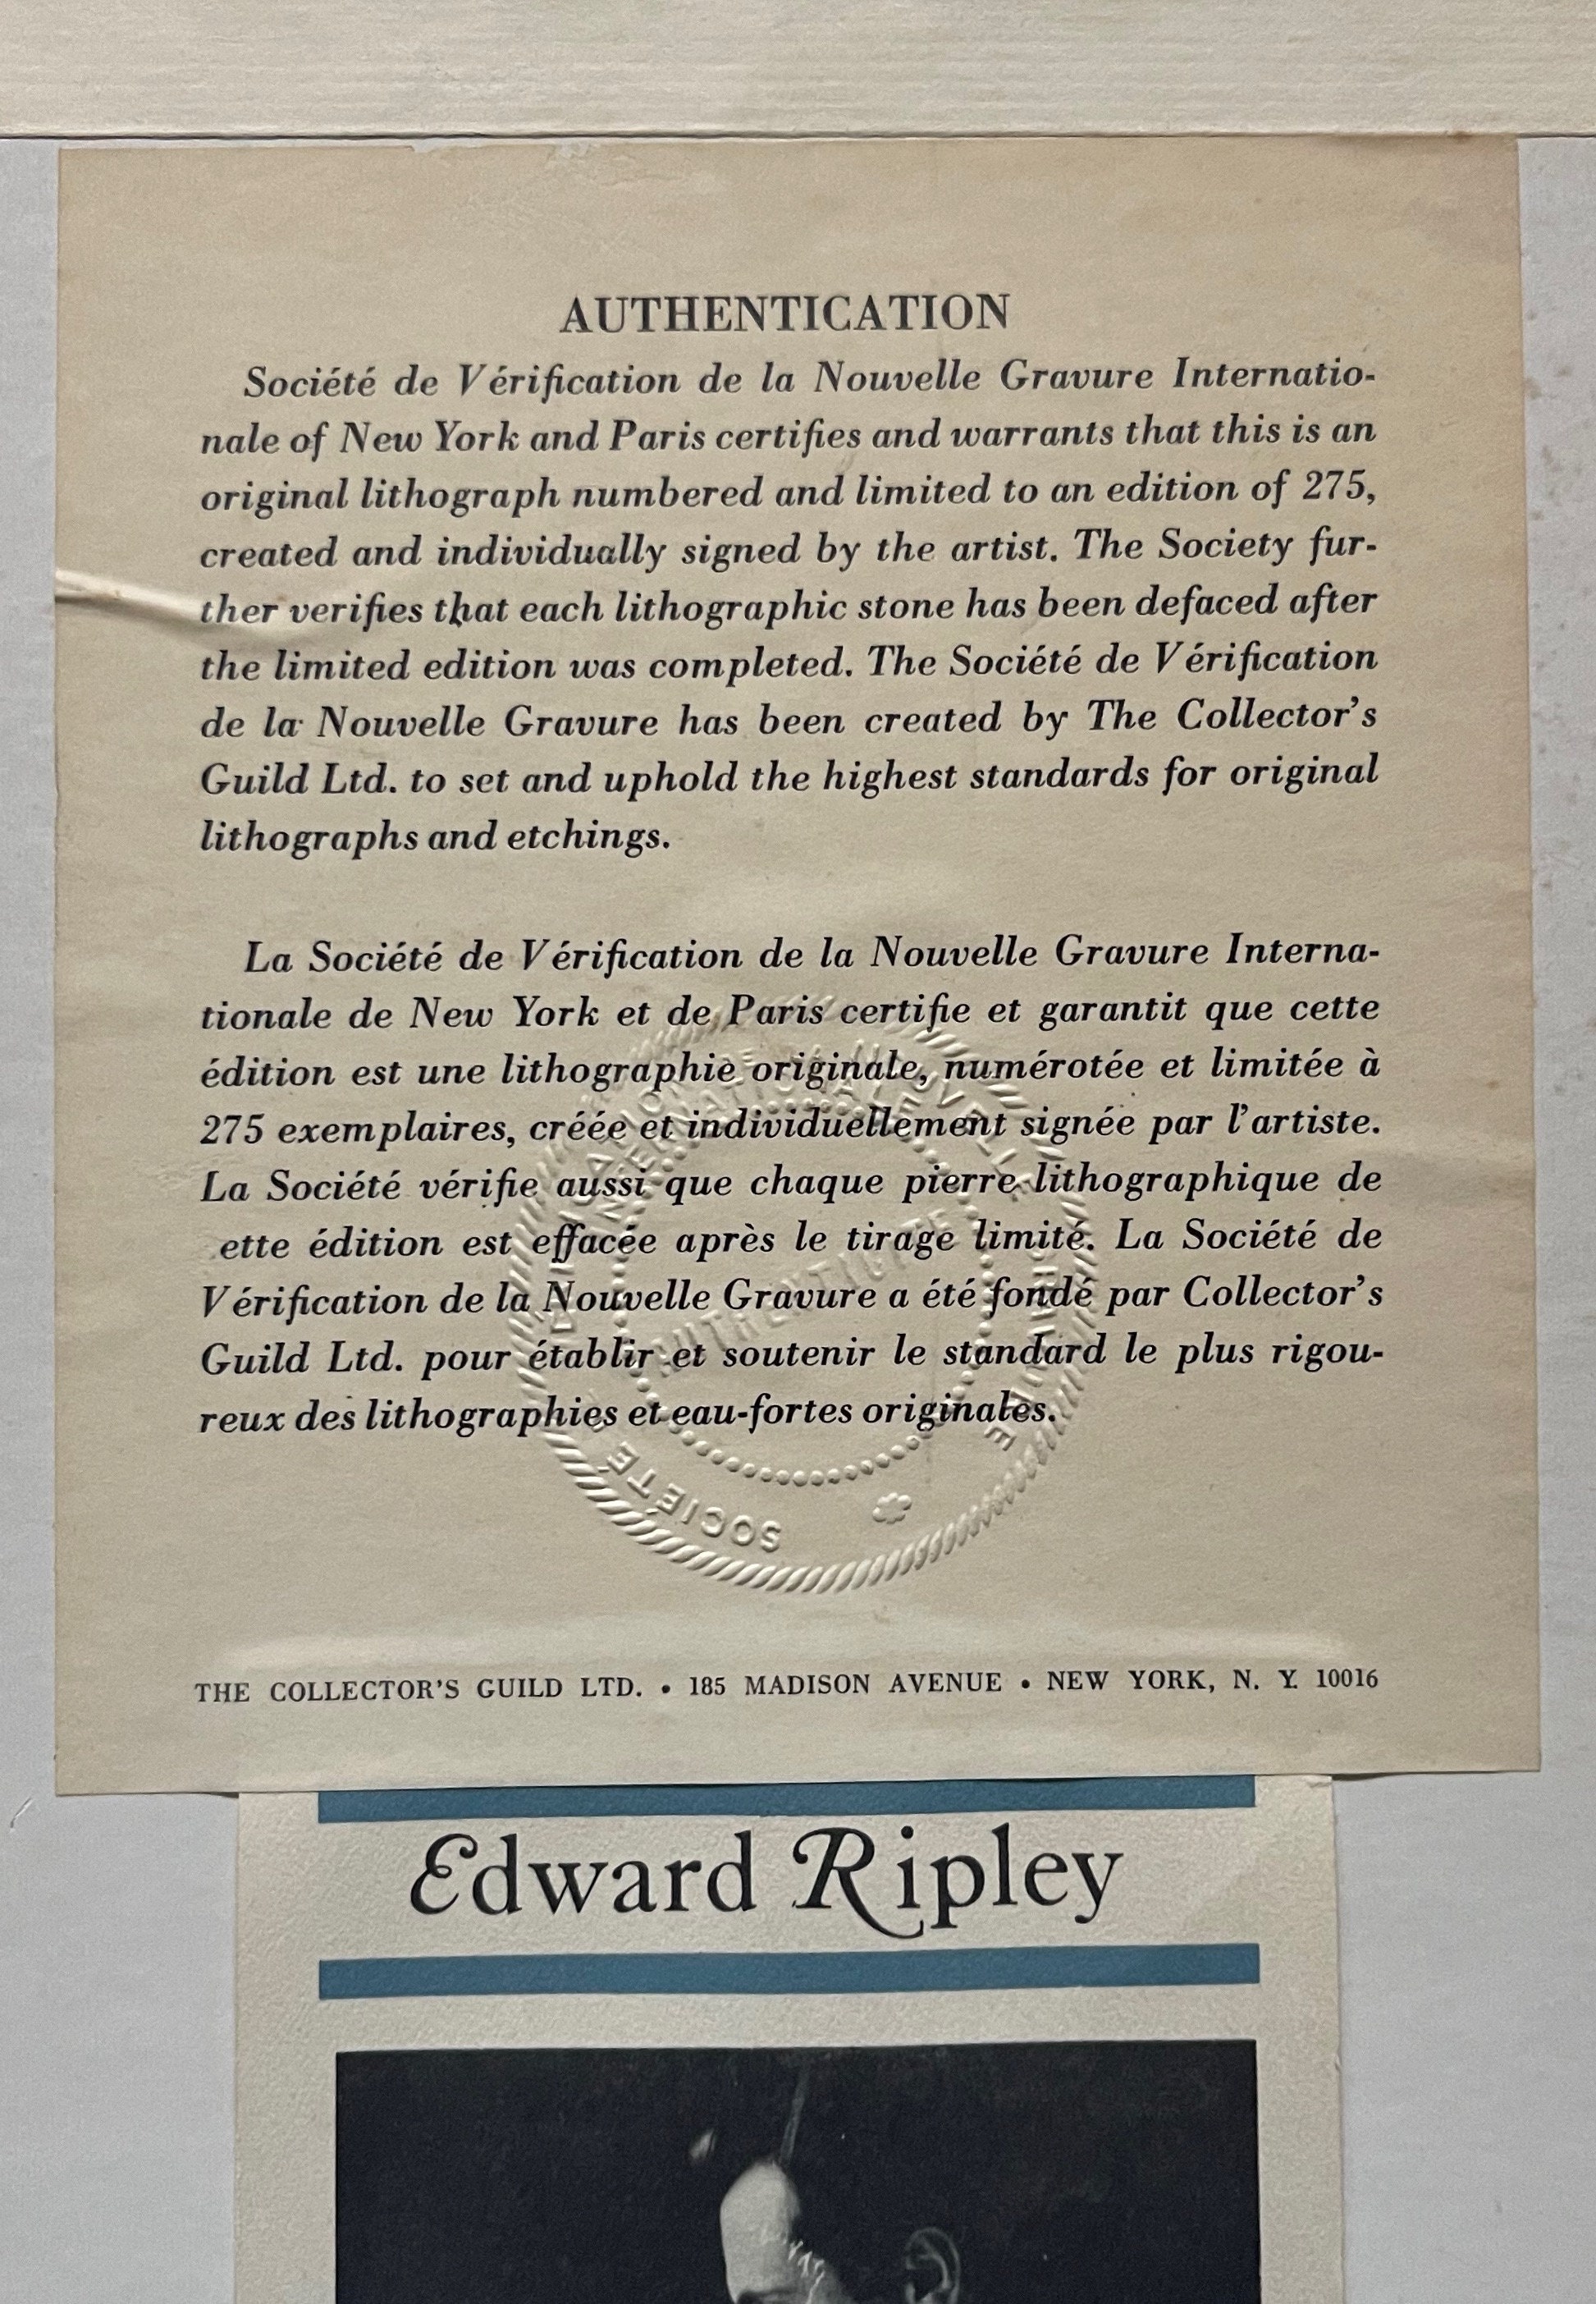 AUTHENTICATION
Société de Vérification de la Nouvelle Gravure Internatio-
nale of New York and Paris certifies and warrants that this is an
original lithograph numbered and limited to an edition of 275,
created and individually signed by the artist. The Society fur-
ther verifies that each lithographic stone has been defaced after
the limited edition was completed. The Société de Vérification
de la Nouvelle Gravure has been created by The Collector's
Guild Ltd. to set and uphold the highest standards for original
lithographs and etchings.
La Société de Vérification de la Nouvelle Gravure Interna-
tionale de New York et de Paris certifie et garantit que cette
édition est une lithographie originale, numérotée et limitée à
275 exemplaires, créée et individuellement signée par l'artiste.
La Société vérifie aussi que chaque pierre lithographique de
ette édition est effacée après le tirage limité. La Société de
Vérification de la Nouvelle Gravure a été fondé par Collector's
Guild Ltd. pour établir et soutenir le standard le plus rigou-
reux des lithographies et eau-fortes originales.
SOCIÉTÉ
THE COLLECTOR'S GUILD LTD. • 185 MADISON AVENUE • NEW YORK, N. Y. 10016
Edward Ripley